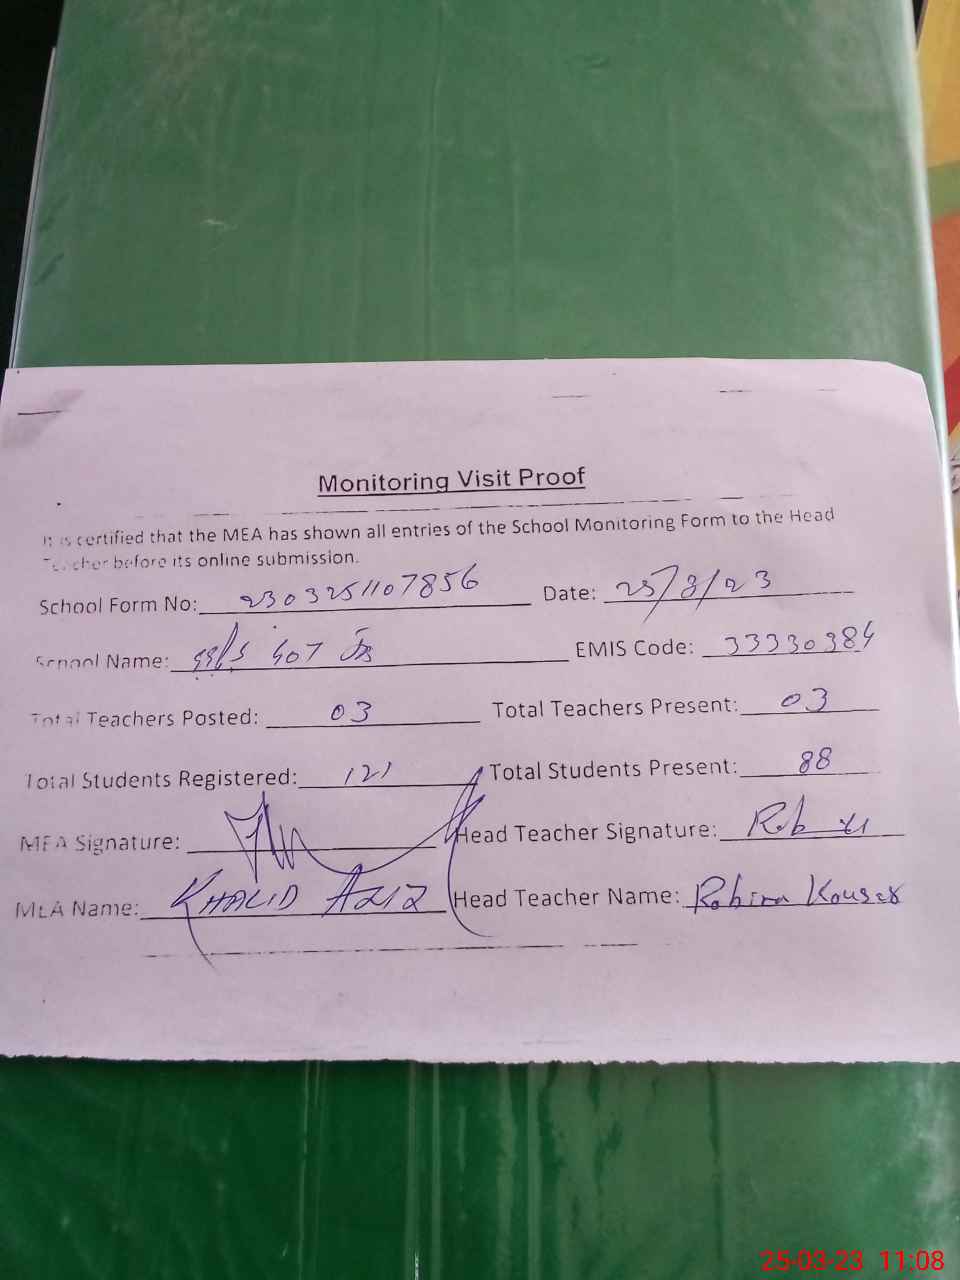 Monitoring Visit Proof
It is certified that the MEA has shown all entries of the School Monitoring Form to the Head
Teacher before its online submission.
School Form No: 2303251107856 Date: 25/3/23
School Name: GGPS 407 JB EMIS Code: 33330384
Total Teachers Posted: 03 Total Teachers Present: 03
Total Students Registered: 121 Total Students Present: 88
MEA Signature: Head Teacher Signature:
MEA Name: KHALID AZIZ Head Teacher Name: Robina Kouser
25-03-23 11:08